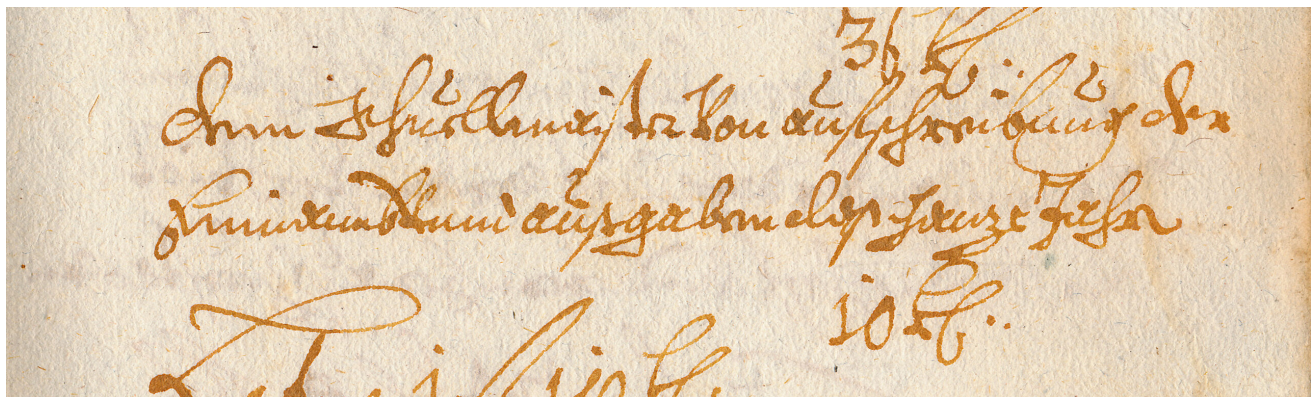 36 kr.
dem Schuellmaister von aufschreibung der
Einnamb vnnd ausgaben des ganze Jahr
10 kr.